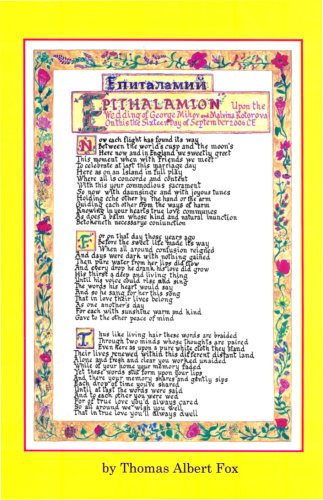 Епиталамий
"EPITHALAMION" Upon the
Wedding of George Mihov and Malvina Kotorova
On this the Sixteenth Day of September 2006 CE
Now each flight has found its way
Between the world's cusp and the moon's
Here now and in England we sweetly greet
This moment when with Friends we meet
To celebrate at last this marriage day
Here as on an Island in full play
Where all is concorde and content
With this your commodious sacrament
So with daunsings and with joyous tunes
Holding eche other by the hand or the arm
Guiding each other from the ways of harm
Knowing in your hearts true love communes
As does a palm whose kind and natural function
Betokeneth necessarye conjunction
For on that day those years ago
Before the sweet life made its way
When all around confusion reigned
And days were dark with nothing gained
Then pure water from her lips did flow
And every drop he drank his love did grow
His thirst a deep and living thing
Until his voice could rise and sing
The words his heart would say
And so he sang for her this song
That in love their lives belong
As one another's day
For each with sunshine warm and kind
Gave to the other peace of mind
Thus like living hair these words are braided
Through two minds whose thoughts are paired
Even here as upon a pure white cloth they stand
Their lives renewed within this different distant land
Alone and fresh and clear you worked unaided
While of your home your memory faded
Yet those words still form upon your lips
And there your memory shares and gently sips
Each drop of time you've shared
Until at last the words were said
And to each other you were wed
For of true love you'd always cared
So all around we wish you well
That in true love you'll always dwell
by Thomas Albert Fox